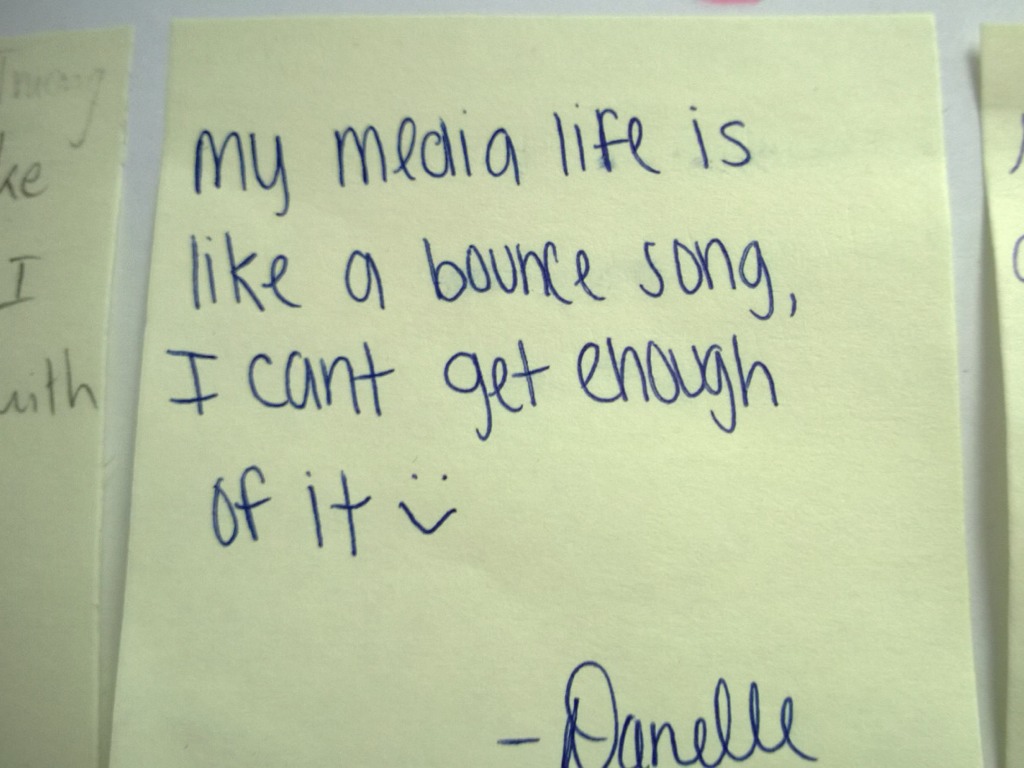 my media life is
like a bounce song,
I cant get enough
of it ¨⌣
- Danelle
ke
I
with